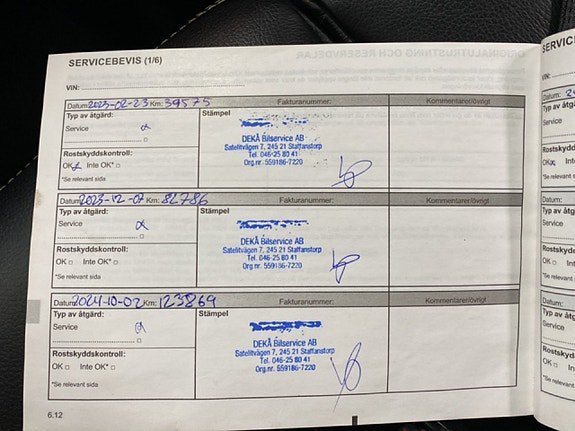 SERVICEBEVIS (1/6)
VIN:
Datum: 2023-02-23 Km: 39575 Fakturanummer: Kommentarer/övrigt
Typ av åtgärd: Stämpel
Service
DEKÅ Bilservice AB
Satellitvägen 7, 245 21 Staffanstorp
Tel. 046-25 80 41
Org.nr. 559186-7220
Rostskyddskontroll:
OK Inte OK*
*Se relevant sida
Datum: 2023-12-07 Km: 82786 Fakturanummer: Kommentarer/övrigt
Typ av åtgärd: Stämpel
Service
DEKÅ Bilservice AB
Satellitvägen 7, 245 21 Staffanstorp
Tel. 046-25 80 41
Org.nr. 559186-7220
Rostskyddskontroll:
OK Inte OK*
*Se relevant sida
Datum: 2024-10-02 Km: 123869 Fakturanummer: Kommentarer/övrigt
Typ av åtgärd: Stämpel
Service
DEKÅ Bilservice AB
Satellitvägen 7, 245 21 Staffanstorp
Tel. 046-25 80 41
Org.nr. 559186-7220
Rostskyddskontroll:
OK Inte OK*
*Se relevant sida
6.12